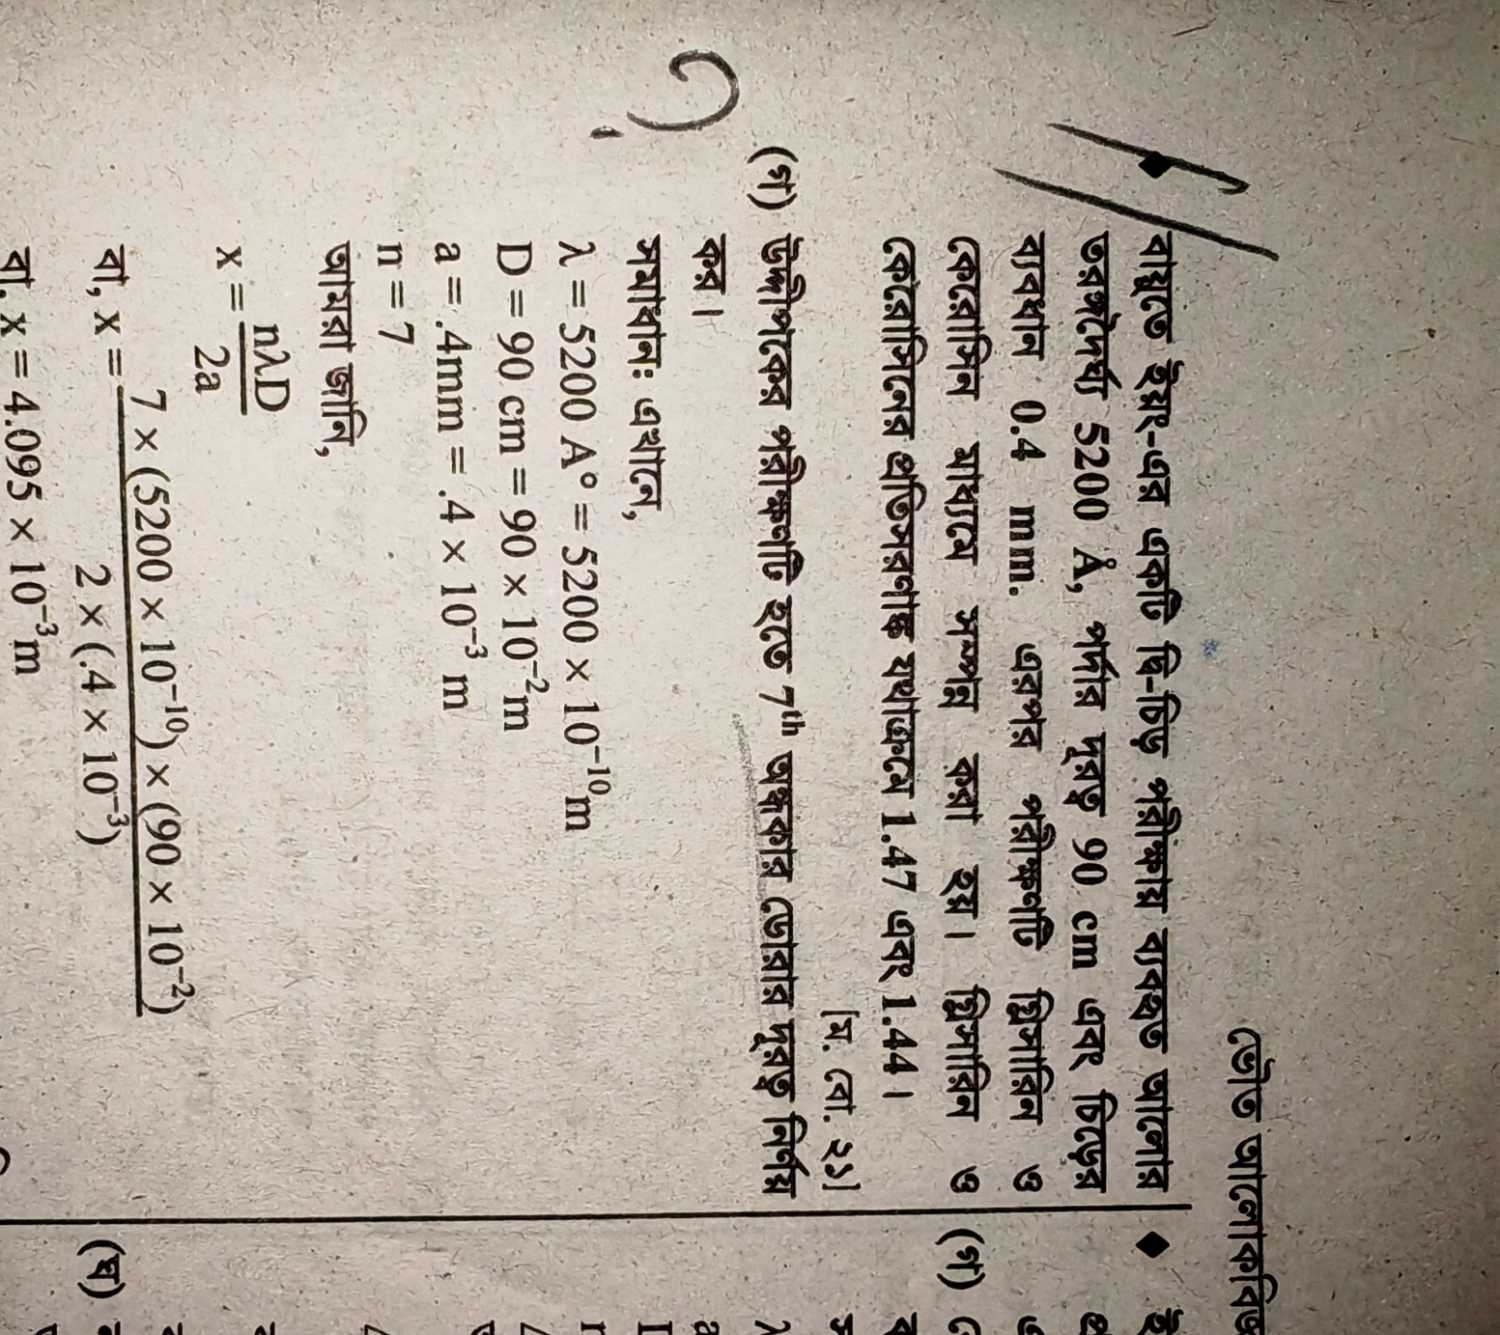 ভৌত আলোকবিজ্ঞ
◆ বায়ুতে ইয়ং-এর একটি দ্বি-চিড় পরীক্ষায় ব্যবহৃত আলোর
তরঙ্গদৈর্ঘ্য 5200 Å, পর্দার দূরত্ব 90 cm এবং চিড়ের
ব্যবধান 0.4 mm. এরপর পরীক্ষণটি গ্লিসারিন ও
কেরোসিন মাধ্যমে সম্পন্ন করা হয়। গ্লিসারিন ও
কেরোসিনের প্রতিসরণাঙ্ক যথাক্রমে 1.47 এবং 1.44।
[ম. বো. ২১]
(গ) উদ্দীপকের পরীক্ষণটি হতে 7th অন্ধকার ডোরার দূরত্ব নির্ণয়
কর।
সমাধানঃ এখানে,
λ = 5200 A° = 5200 × 10⁻¹⁰m
D = 90 cm = 90 × 10⁻²m
a = .4mm = .4 × 10⁻³ m
n = 7
আমরা জানি,
x = nλD / 2a
বা, x = 7 × (5200 × 10⁻¹⁰) × (90 × 10⁻²) / 2 × (.4 × 10⁻³)
বা, x = 4.095 × 10⁻³m
◆
(গ)
(ঘ)